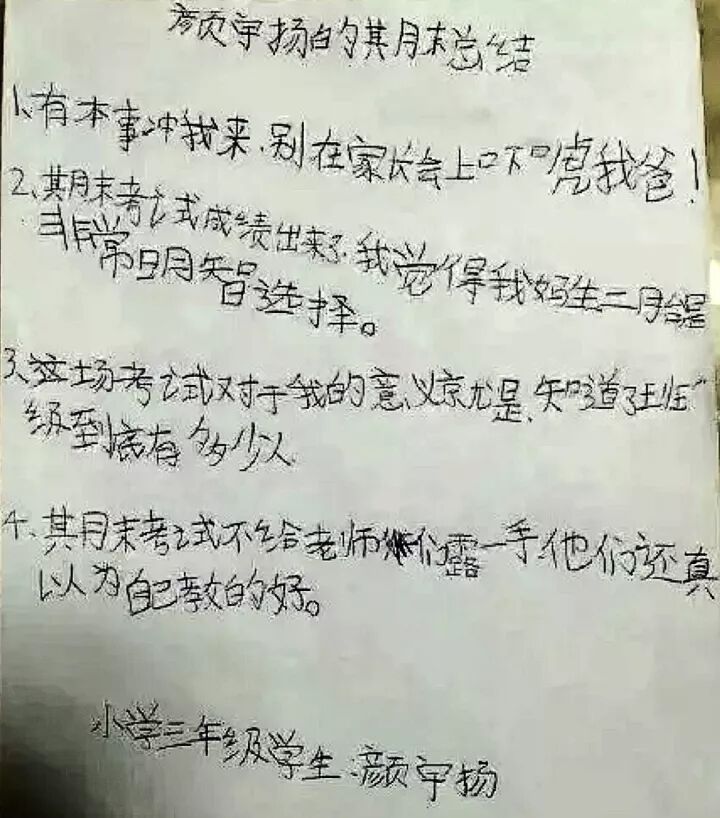 颜宇扬的期末总结
1、有本事冲我来,别在家长会上吓唬我爸!
2、期末考试成绩出来了,我觉得我妈生二胎是
非常明智选择。
3、这场考试对于我的意义就是,知道了班
级到底有多少人
4、期末考试不给老师们露一手,他们还真
以为自己教的好。
小学三年级学生、颜宇扬